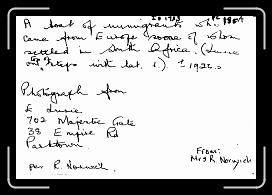 A boat of immigrants who
came from Europe some of whom
settled in South Africa. (Lurie
on steps with hat.) ± 1922.
Photograph from
E Lurie
702 Majestic Gate
38 Empire Rd
Parktown.
per R. Norwich
From:
Mrs R. Norwich